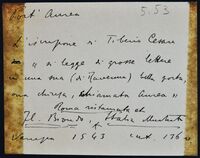 Port' Aurea 5.53
L'iscrizione di Tiberio Cesare
" si legge di grosse lettere
in una sua (di Ravenna) bella porta,
ora chiusa, chiamata Aurea "
Roma ristaurata et
Il Biondo, Italia illustrata
Venezia 1543 cart. 176